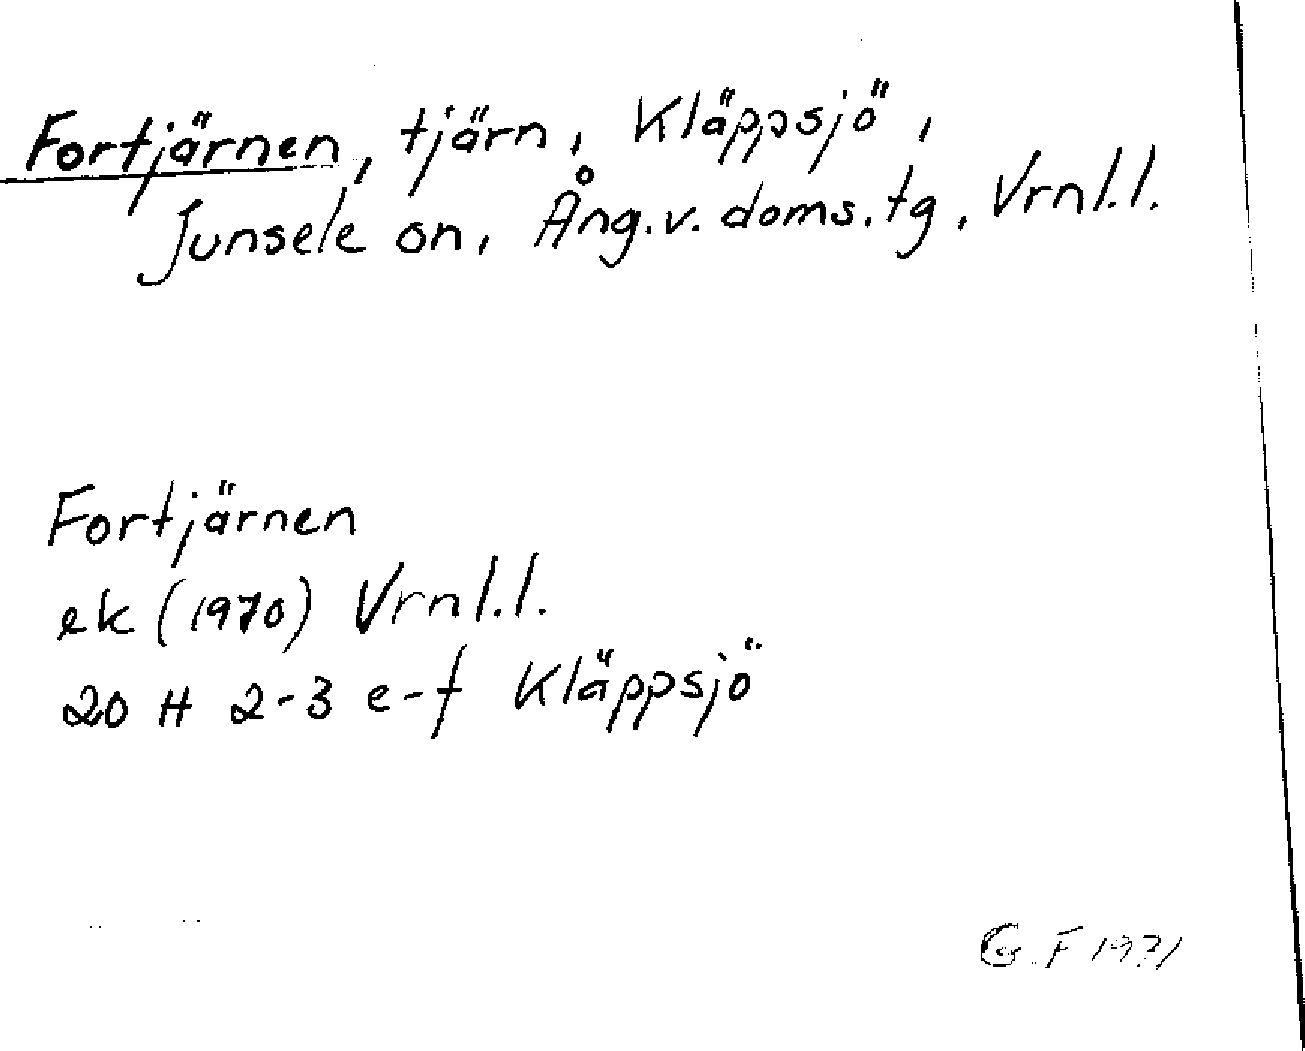 Fortjärnen, tjärn, Kläppsjö,
Junsele sn, Ång.v. doms.tg, Vrnl.l.
Fortjärnen
ek (1970) Vrnl.l.
20 H 2-3 e-f Kläppsjö
G. F